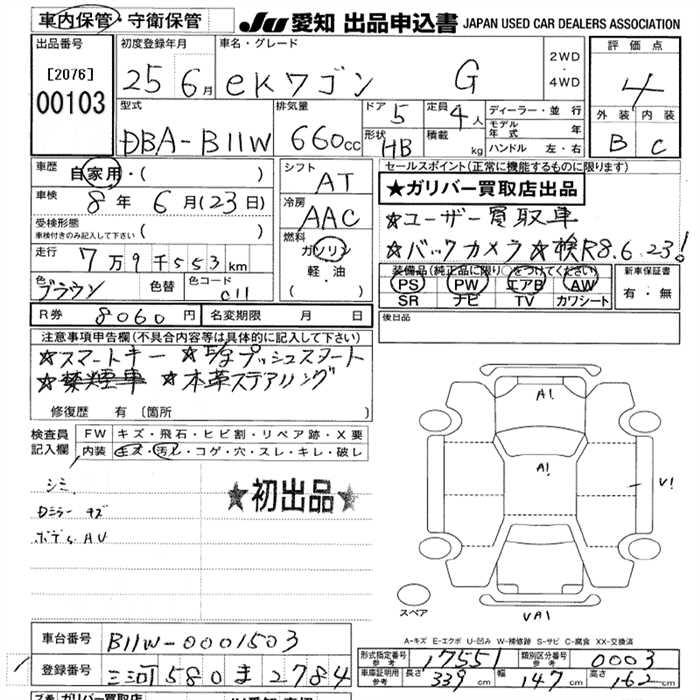 車内保管・守衛保管
JU 愛知 出品申込書 JAPAN USED CAR DEALERS ASSOCIATION
出品番号 初度登録年月 車名・グレード 2WD・4WD 評価点
[2076] 25 6月 eKワゴン G 4
00103
型式 排気量 ドア 5 定員 4人 ディーラー・並行 外装 内装
モデル年式 年
DBA-B11W 660cc 形状 HB 積載 kg ハンドル 左・右 B C
車歴 自家用・( ) シフト AT セールスポイント(正常に機能するものに限ります)
★ガリバー買取店出品
車検 8年 6月(23日) 冷房 AAC ☆ユーザー買取車
受検形態 車検付きのみ記入して下さい ( ) 燃料 ガソリン 軽油 ( ) ☆バックカメラ ☆検R8.6.23!
走行 7万9千553km 装備品(純正品に限り○をつけてください) 新車保証書
色 ブラウン 色替 色コード C11 PS PW エアB AW 有・無
SR ナビ TV カワシート
R券 8060円 名変期限 月 日 後日品
注意事項申告欄(不具合内容等は具体的に記入して下さい)
☆スマートキー ☆プッシュスタート
☆禁煙車 ☆本革ステアリング
修復歴 有 〔箇所 〕
A1
検査員記入欄 FW キズ・飛石・ヒビ割・リペア跡・X要
内装 キズ・汚レ・コゲ・穴・スレ・キレ・破レ
A!
V!
シミ
★初出品★
Dミラーキズ
ボデーA.U
スペア
VA1
A-キズ E-エクボ U-凹み W-補修跡 S-サビ C-腐食 XX-交換済
車台番号 B11W-0001503
形式指定番号 参考 17551 類別区分番号 参考 0003
登録番号 三河 580 ま 2784
車庫証明用 参考 長さ 339cm 幅 147cm 高さ 162cm
ガリバー買取店